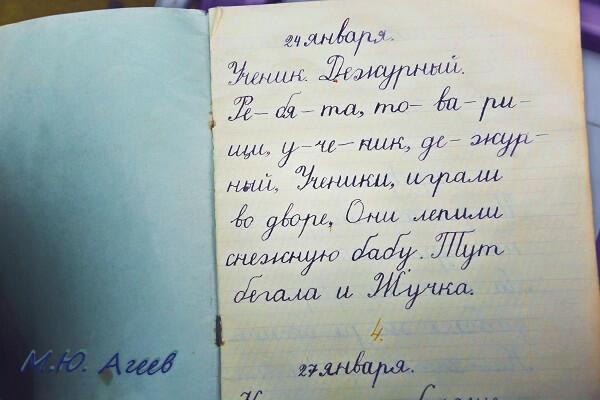 24 января.
Ученик. Дежурный.
Ре-бя-та, то-ва-ри-
щи, у-че-ник, де-жур-
ный, Ученики, играли
во дворе, Они лепили
снежную бабу. Тут
бегала и Жучка.
4.
27 января.
М.Ю. Агеев